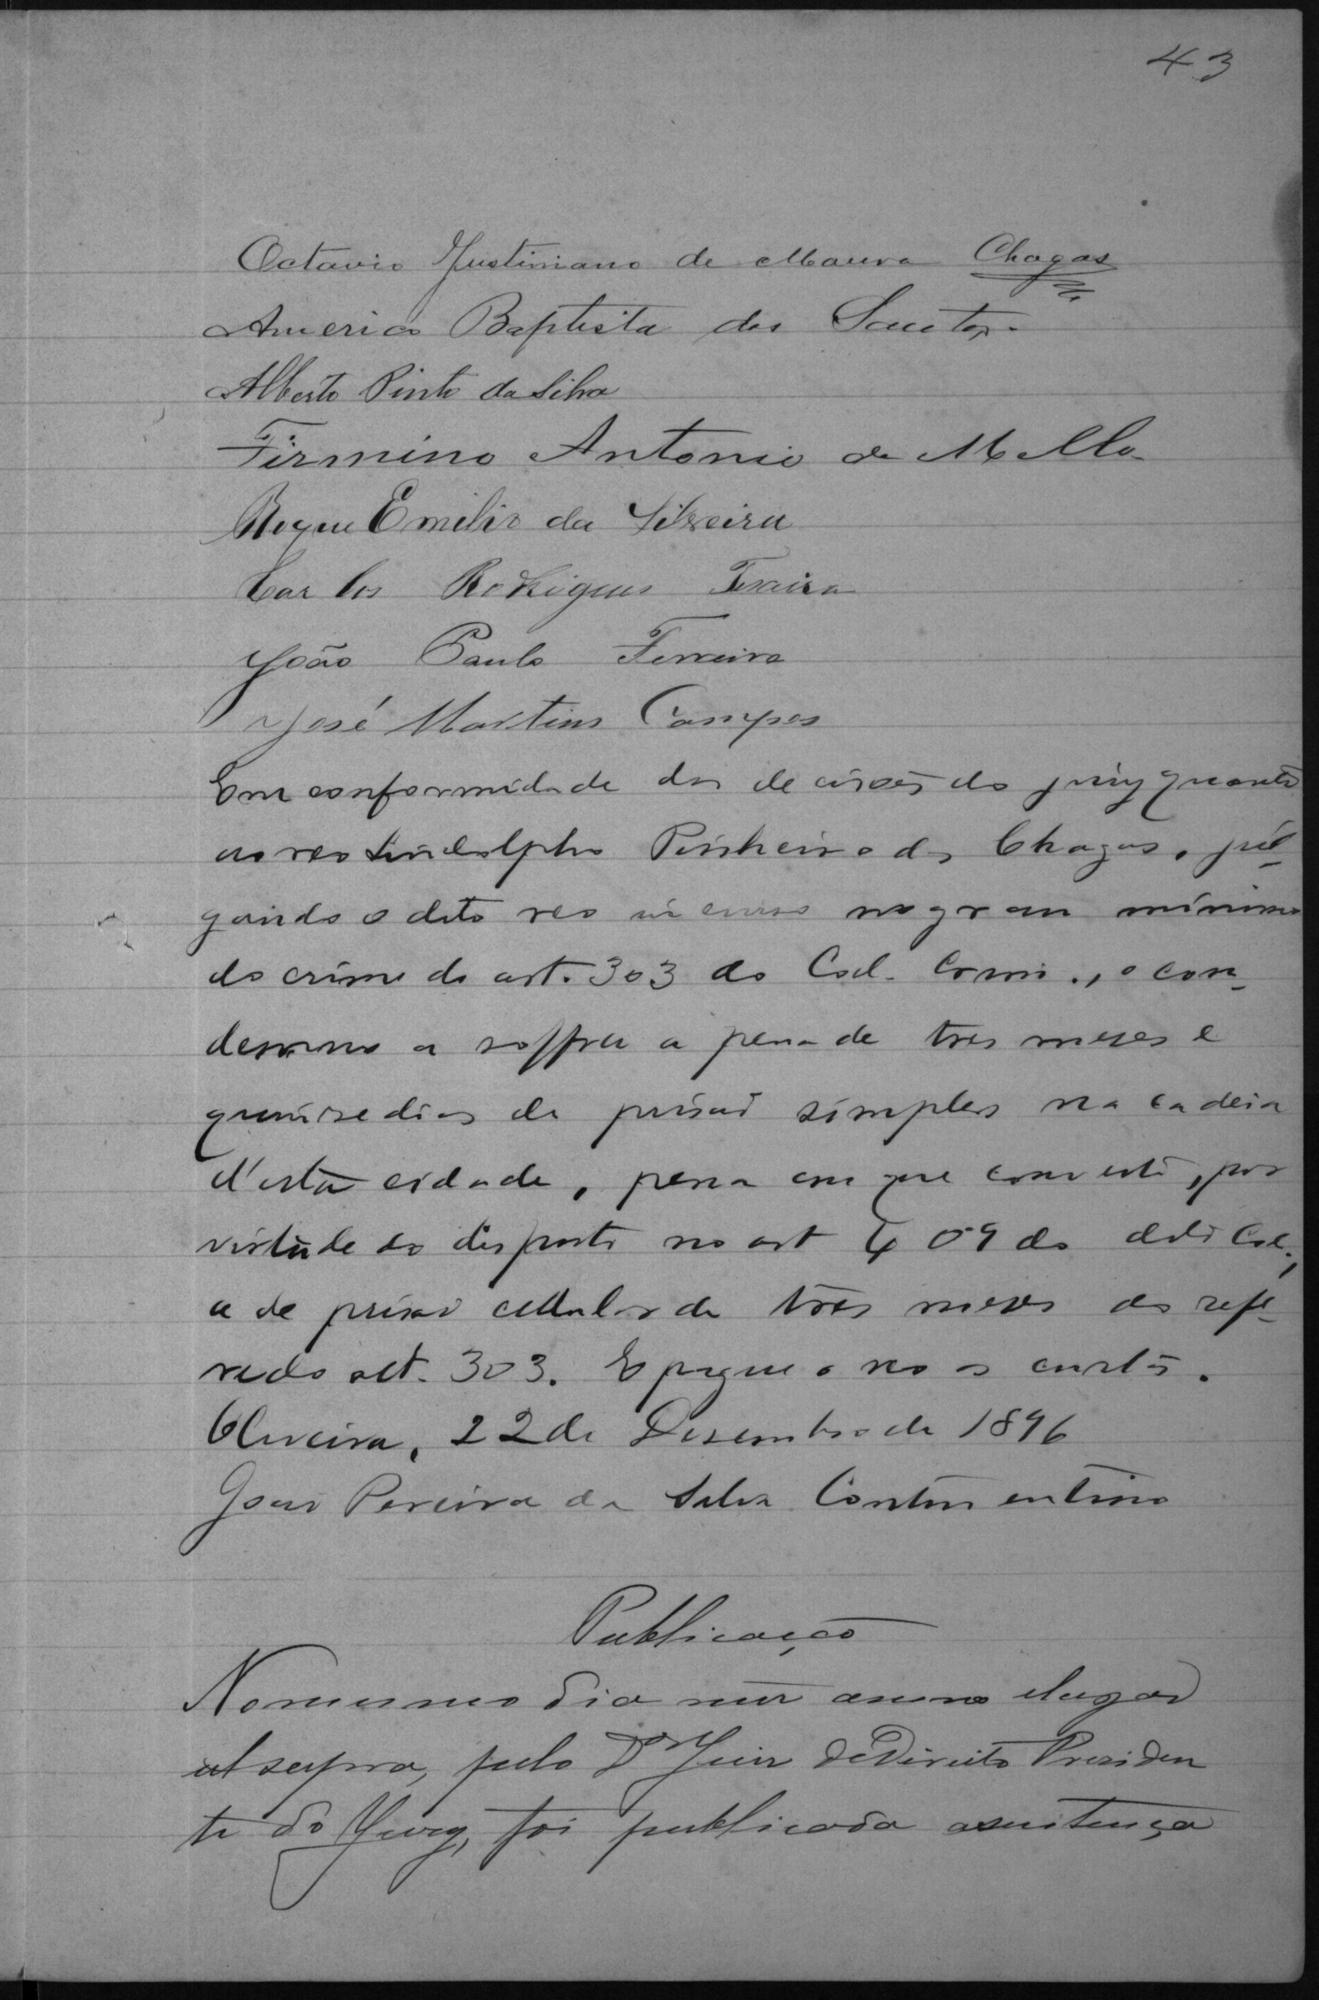 43
Octavio Justiniano de Moura Chagas
Americo Baptista dos Santos
Alberto Pinto da Silva
Firmino Antonio de Mello
Roque Emilio da Silveira
Carlos Rodrigues Teixeira
João Paulo Ferreira
José Martins Campos
Em conformidade das decisões do jury quanto
ao reo Lindolpho Pinheiro das Chagas, jul-
gando o dito reo incurso no grau minimo
do crime do art. 303 do Cod. Crim., o con-
demno a soffrer a pena de tres meses e
quinze dias de prisão simples na cadeia
d'esta cidade, pena em que converti, por
virtude do disposto no art 409 do dito Cod.,
a de prisão cellular de tres meses do refe-
rido art. 303. E pague o reo as custas.
Oliveira, 22 de Dezembro de 1896
João Pereira da Silva Continentino
Publicação
No mesmo dia mez anno e lugar
ut supra, pelo Dr Juiz de Direito Presiden
te do Jury, foi publicada a sentença